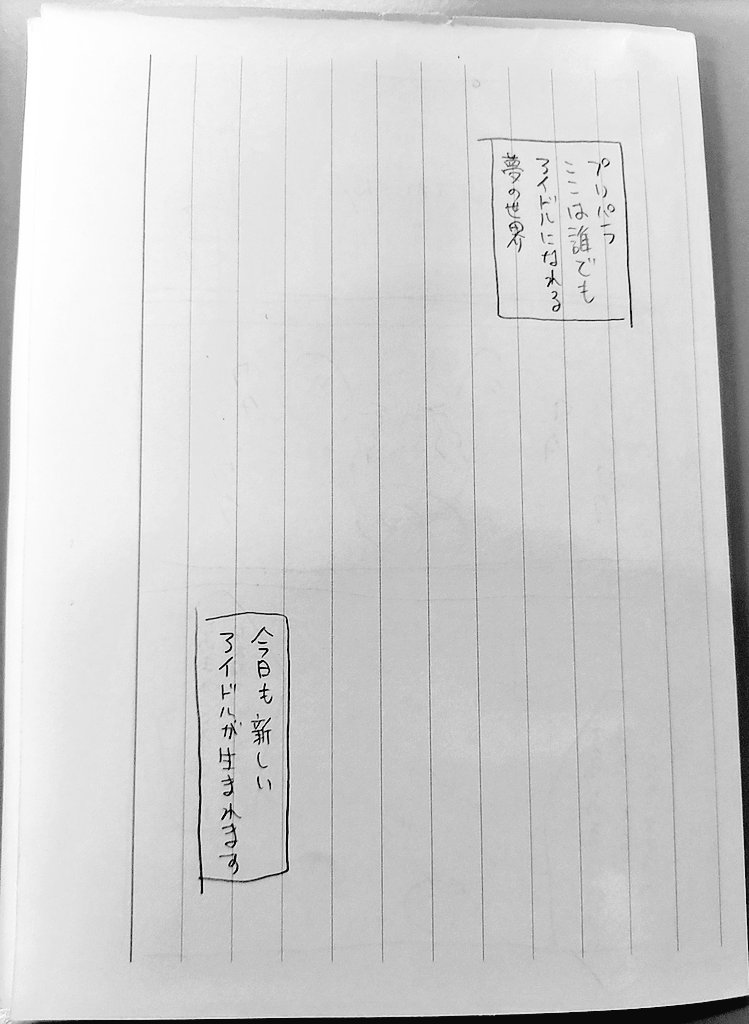 プリパラ
ここは誰でも
アイドルになれる
夢の世界
今日も新しい
アイドルが生まれます